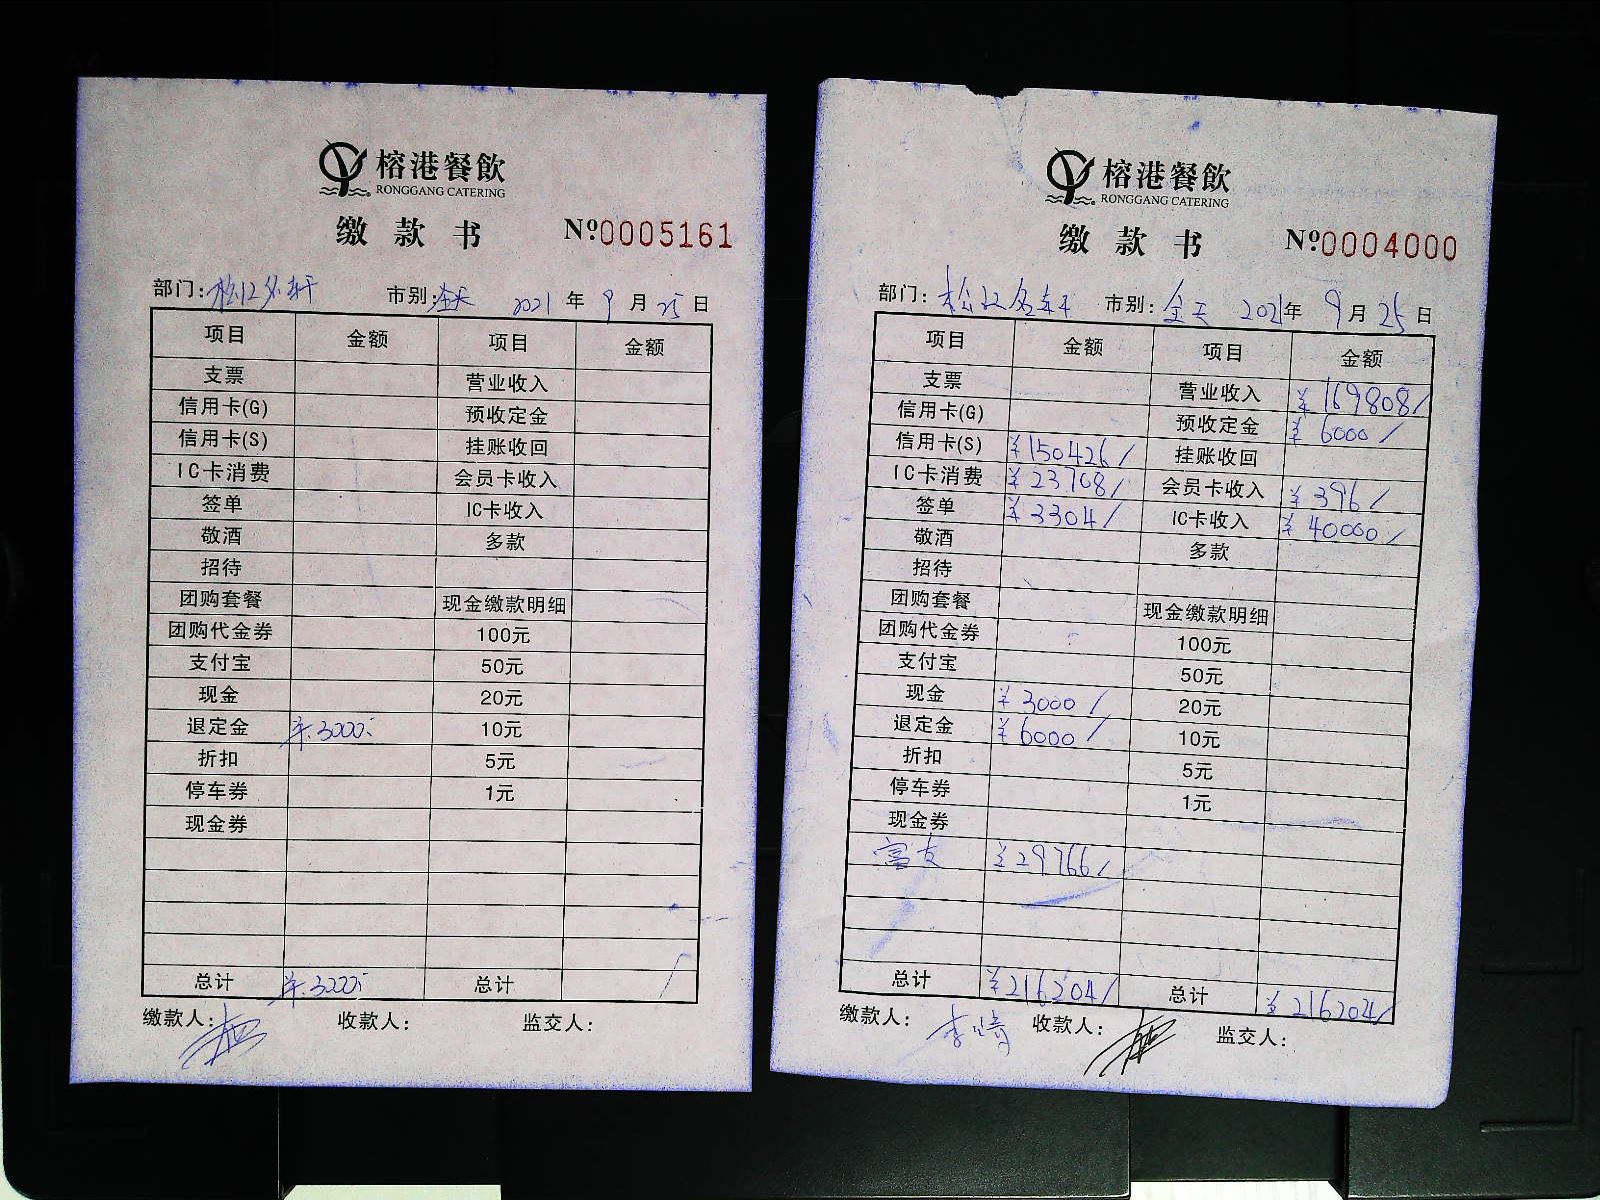 榕港餐飲
RONGGANG CATERING
缴款书 №0005161
部门:松江名轩 市别:全天 2021年9月25日
项目 金额 项目 金额
支票 营业收入
信用卡(G) 预收定金
信用卡(S) 挂账收回
IC卡消费 会员卡收入
签单 IC卡收入
敬酒 多款
招待
团购套餐 现金缴款明细
团购代金券 100元
支付宝 50元
现金 20元
退定金 ¥:3000:- 10元
折扣 5元
停车券 1元
现金券
总计 ¥:3000:- 总计
缴款人: 收款人: 监交人:
榕港餐飲
RONGGANG CATERING
缴款书 №0004000
部门:松江名轩 市别:全天 2021年9月25日
项目 金额 项目 金额
支票 营业收入 ¥169808/
信用卡(G) 预收定金 ¥6000/
信用卡(S) ¥150426/ 挂账收回
IC卡消费 ¥23708/ 会员卡收入 ¥396/
签单 ¥3304/ IC卡收入 ¥40000/
敬酒 多款
招待
团购套餐 现金缴款明细
团购代金券 100元
支付宝 50元
现金 ¥3000/ 20元
退定金 ¥6000/ 10元
折扣 5元
停车券 1元
现金券
富友 ¥29766/
总计 ¥216204/ 总计 ¥216204/
缴款人: 收款人: 监交人: